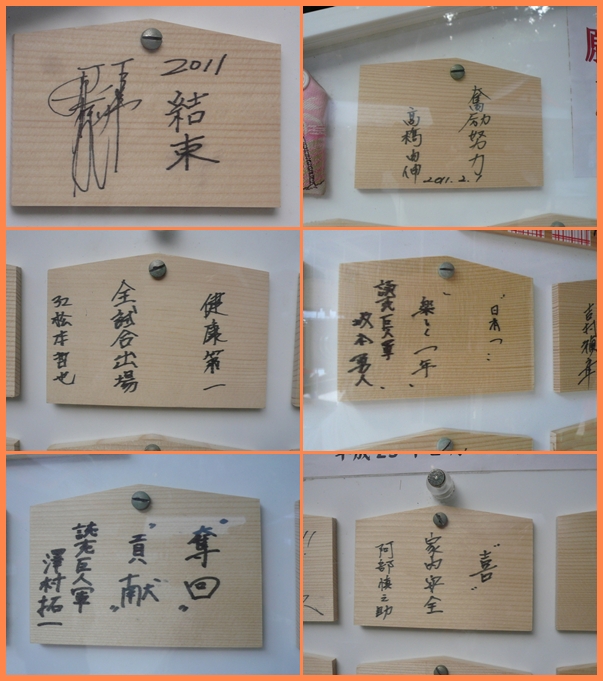 2011
結束
奮励努力
高橋由伸
2011.2.7
健康第一
全試合出場
32 松本哲也
"日本一"
"楽しく一年"
読売巨人軍
坂本勇人
"奪回"
"貢献"
読売巨人軍
澤村拓一
平成23年
"喜"
家内安全
阿部慎之助